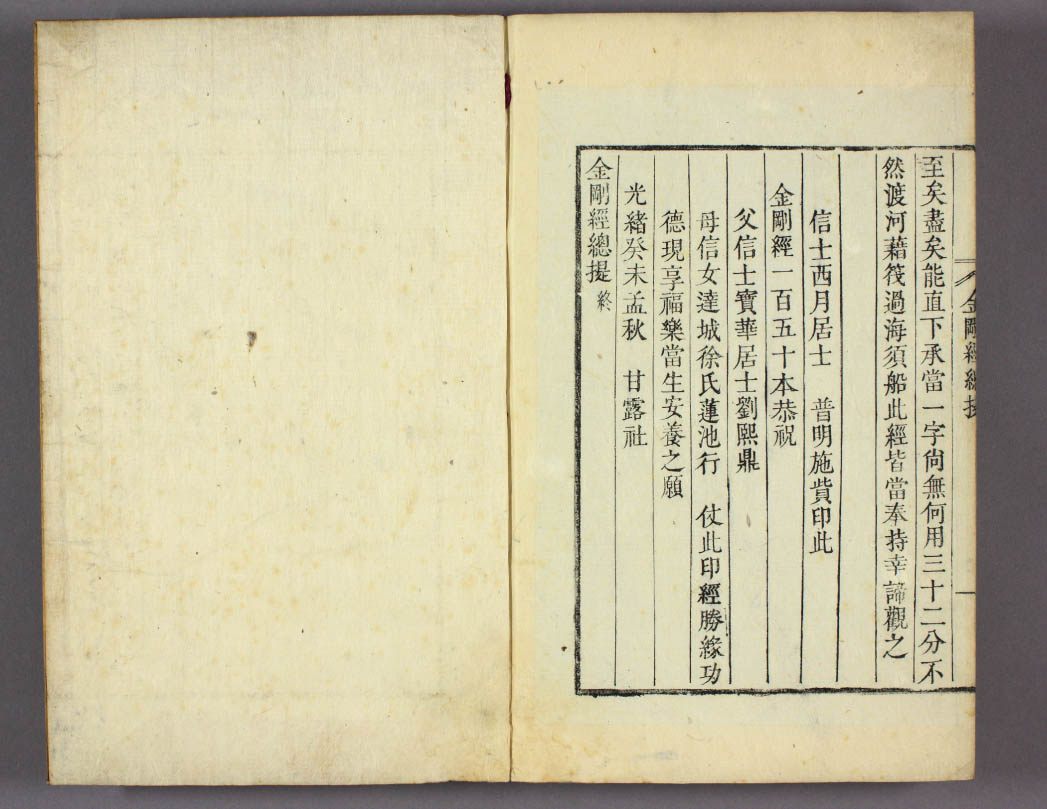 金剛經總提
一
至矣盡矣能直下承當一字尙無何用三十二分不
然渡河藉筏過海須船此經皆當奉持幸諦觀之
信士西月居士 普明施貲印此
金剛經一百五十本恭祝
父信士寶華居士劉熙鼎
母信女達城徐氏蓮池行 仗此印經勝緣功
德現享福樂當生安養之願
光緖癸未孟秋 甘露社
金剛經總提 終